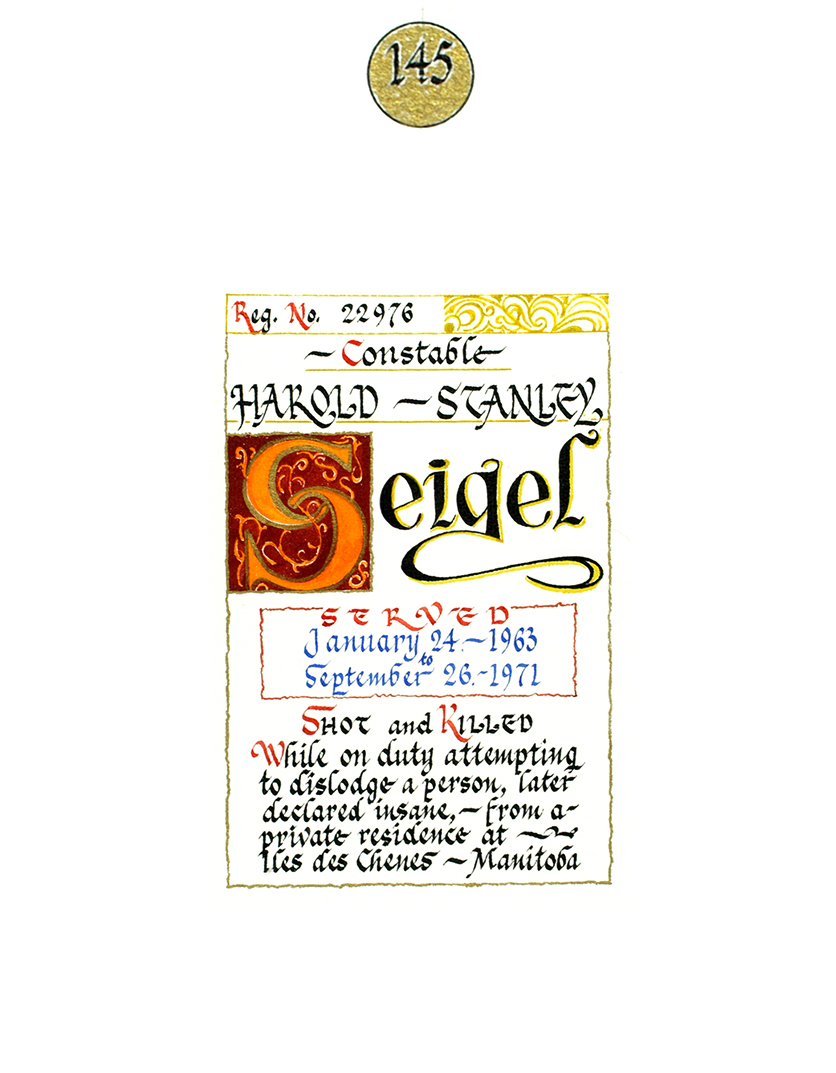 145
Reg. No. 22976
~Constable
HAROLD ~ STANLEY
Seigel
SERVED
January 24.~1963
to
September 26.-1971
SHOT and KILLED
While on duty attempting
to dislodge a person, later
declared insane,~ from a-
private residence at ~
Iles des Chenes ~ Manitoba